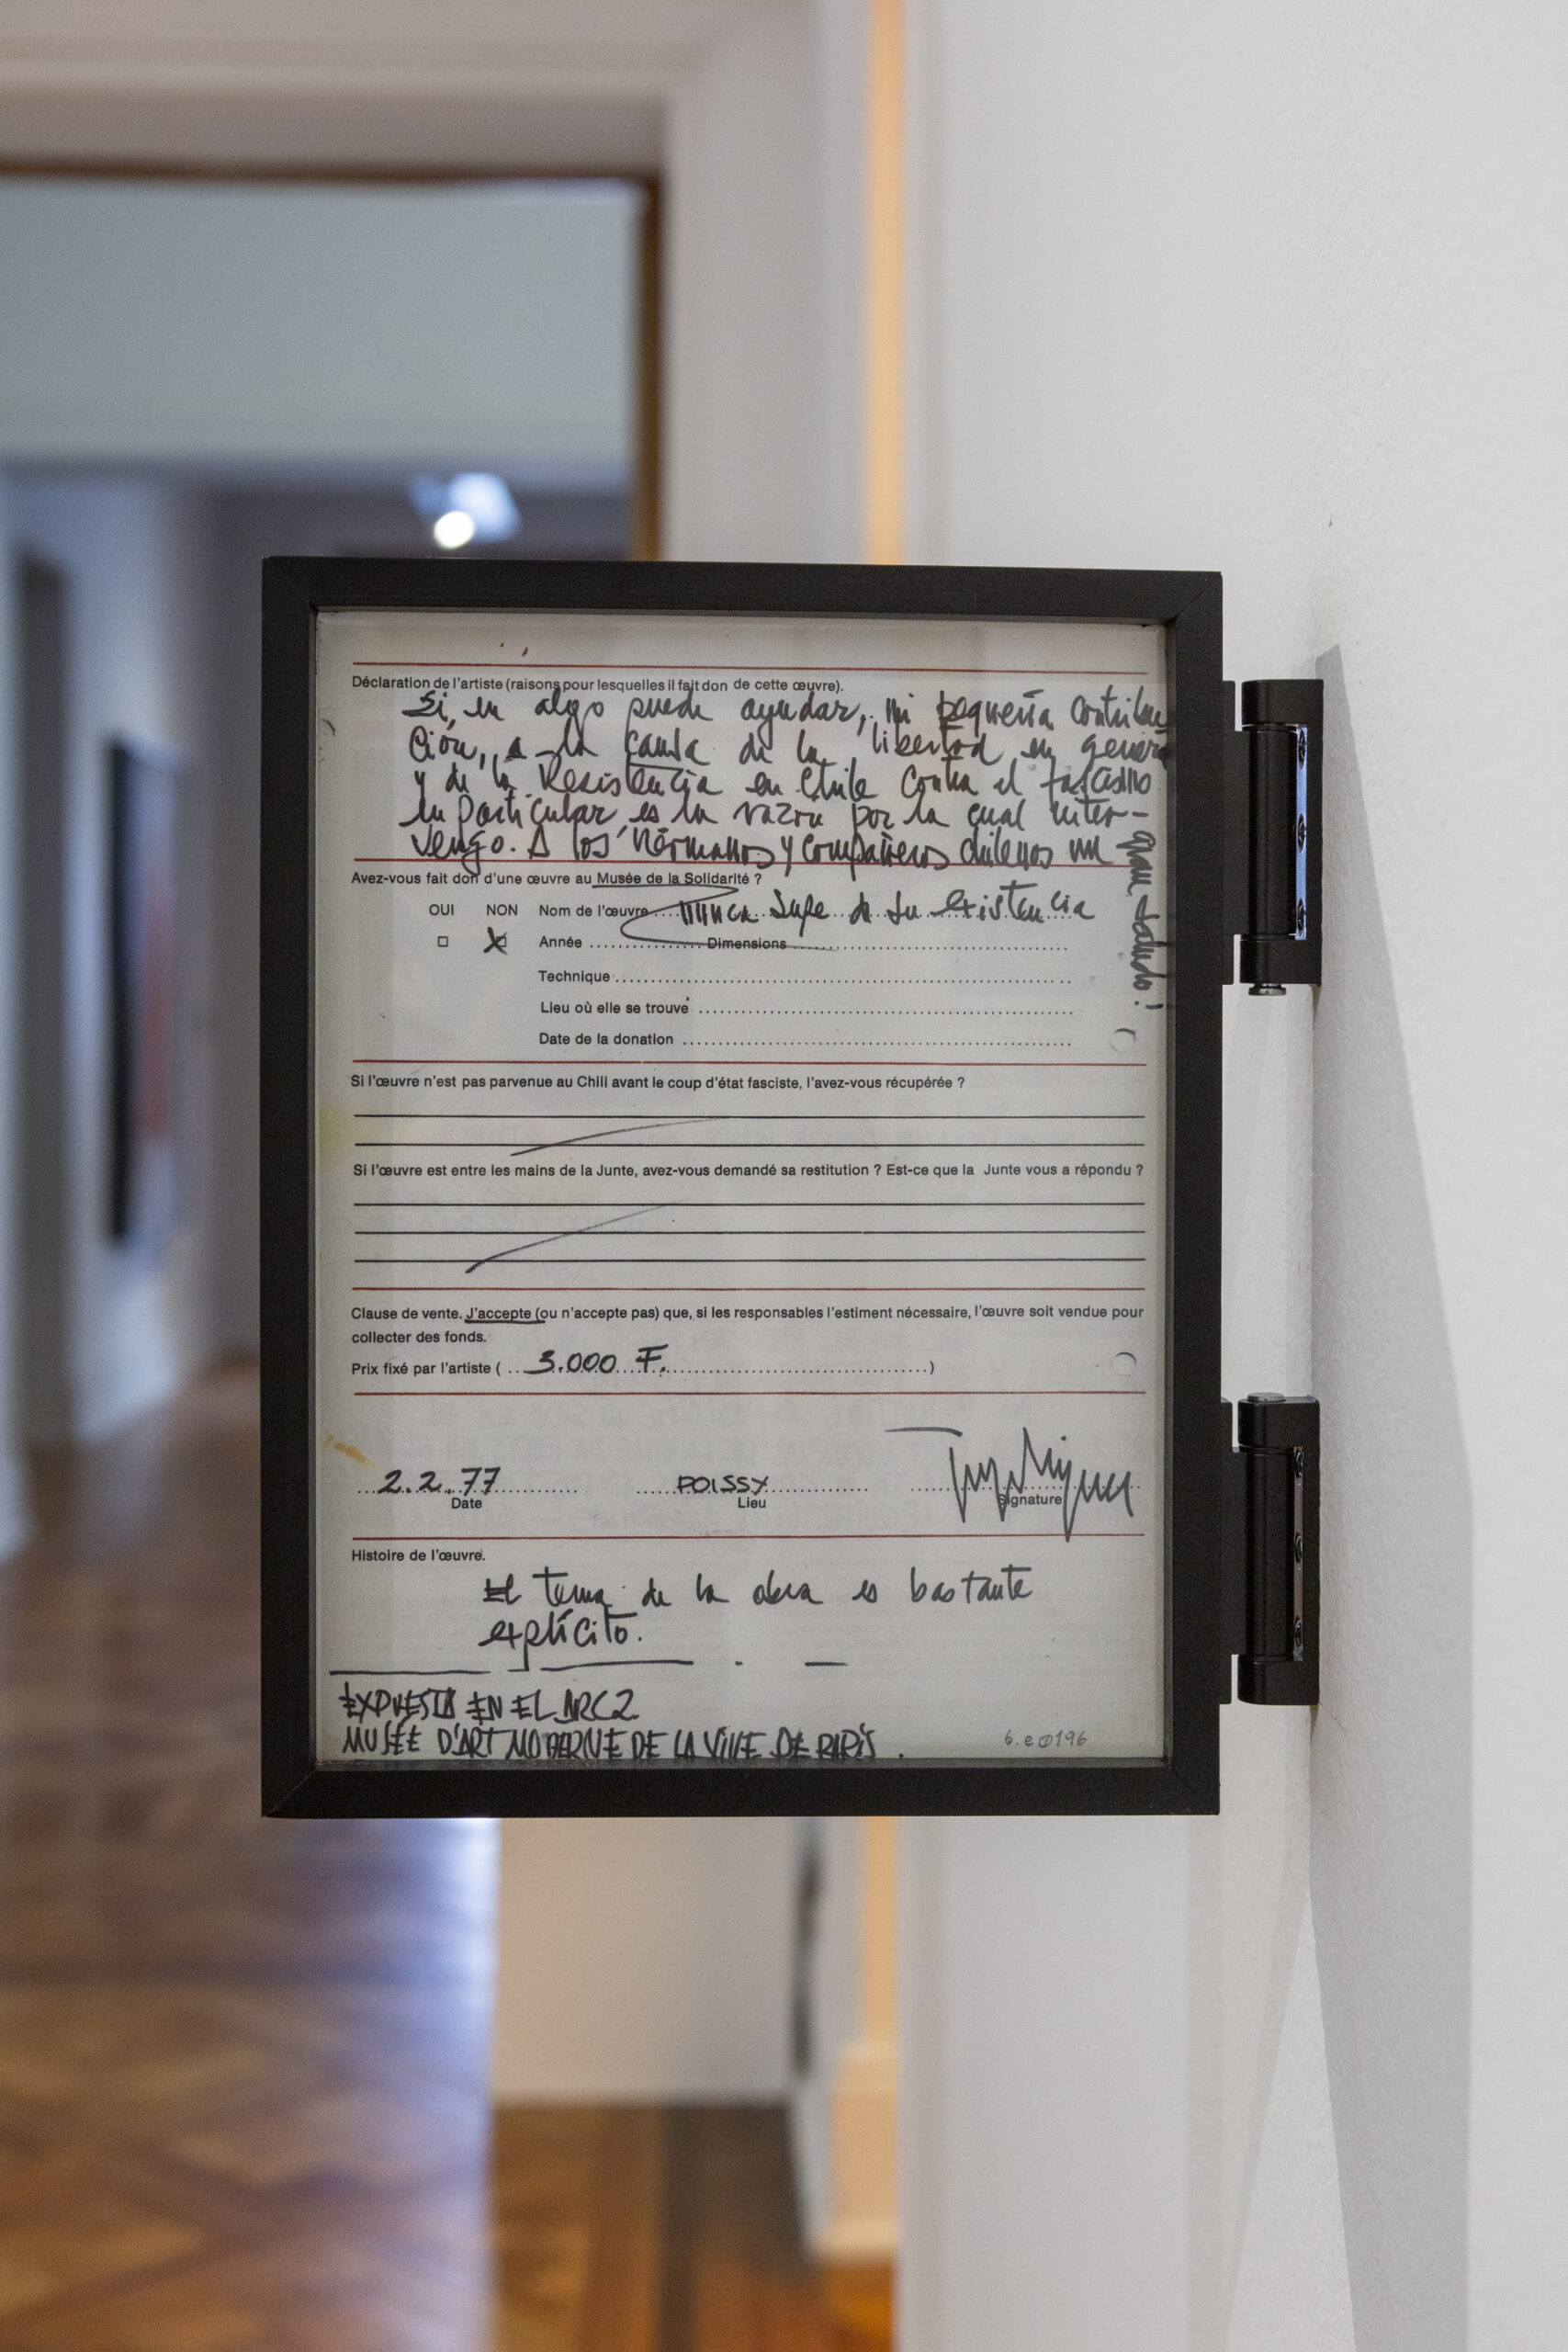 Déclaration de l'artiste (raisons pour lesquelles il fait don de cette œuvre).
Si, en algo puede ayudar, mi pequeña contribu
ción, a la causa de la libertad en genera
y de la Resistencia en Chile contra el fascismo
en particular es la razón por la cual inter-
vengo. A los hermanos y compañeros chilenos un
gran saludo!
Avez-vous fait don d'une œuvre au Musée de la Solidarité ?
OUI NON Nom de l'œuvre nunca supe de su existencia
Année Dimensions
Technique
Lieu où elle se trouve
Date de la donation
Si l'œuvre n'est pas parvenue au Chili avant le coup d'état fasciste, l'avez-vous récupérée ?
Si l'œuvre est entre les mains de la Junte, avez-vous demandé sa restitution ? Est-ce que la Junte vous a répondu ?
Clause de vente. J'accepte (ou n'accepte pas) que, si les responsables l'estiment nécessaire, l'œuvre soit vendue pour
collecter des fonds.
Prix fixé par l'artiste ( 3.000 F. )
2.2.77 POISSY
Date Lieu Signature
Histoire de l'œuvre.
El tema de la obra es bastante
explícito.
EXPUESTA EN EL ARC2
MUSÉE D'ART MODERNE DE LA VILLE DE PARIS.